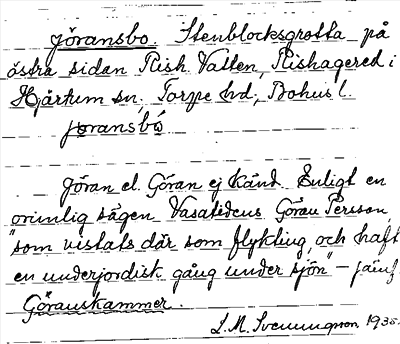 Jöransbo. Stenblocksgrotta på
östra sidan Rish Vatten, Rishagered i
Hjärtum sn, Torpe hd, Bohus l.
jøransbó
Jöran el. Göran ej känd. Enligt en
orimlig sägen Vasatidens Göran Persson,
"som vistats där som flykting och haft
en underjordisk gång under sjön" – jämf
Göranskammer.
L. M. Svenungson 1935.